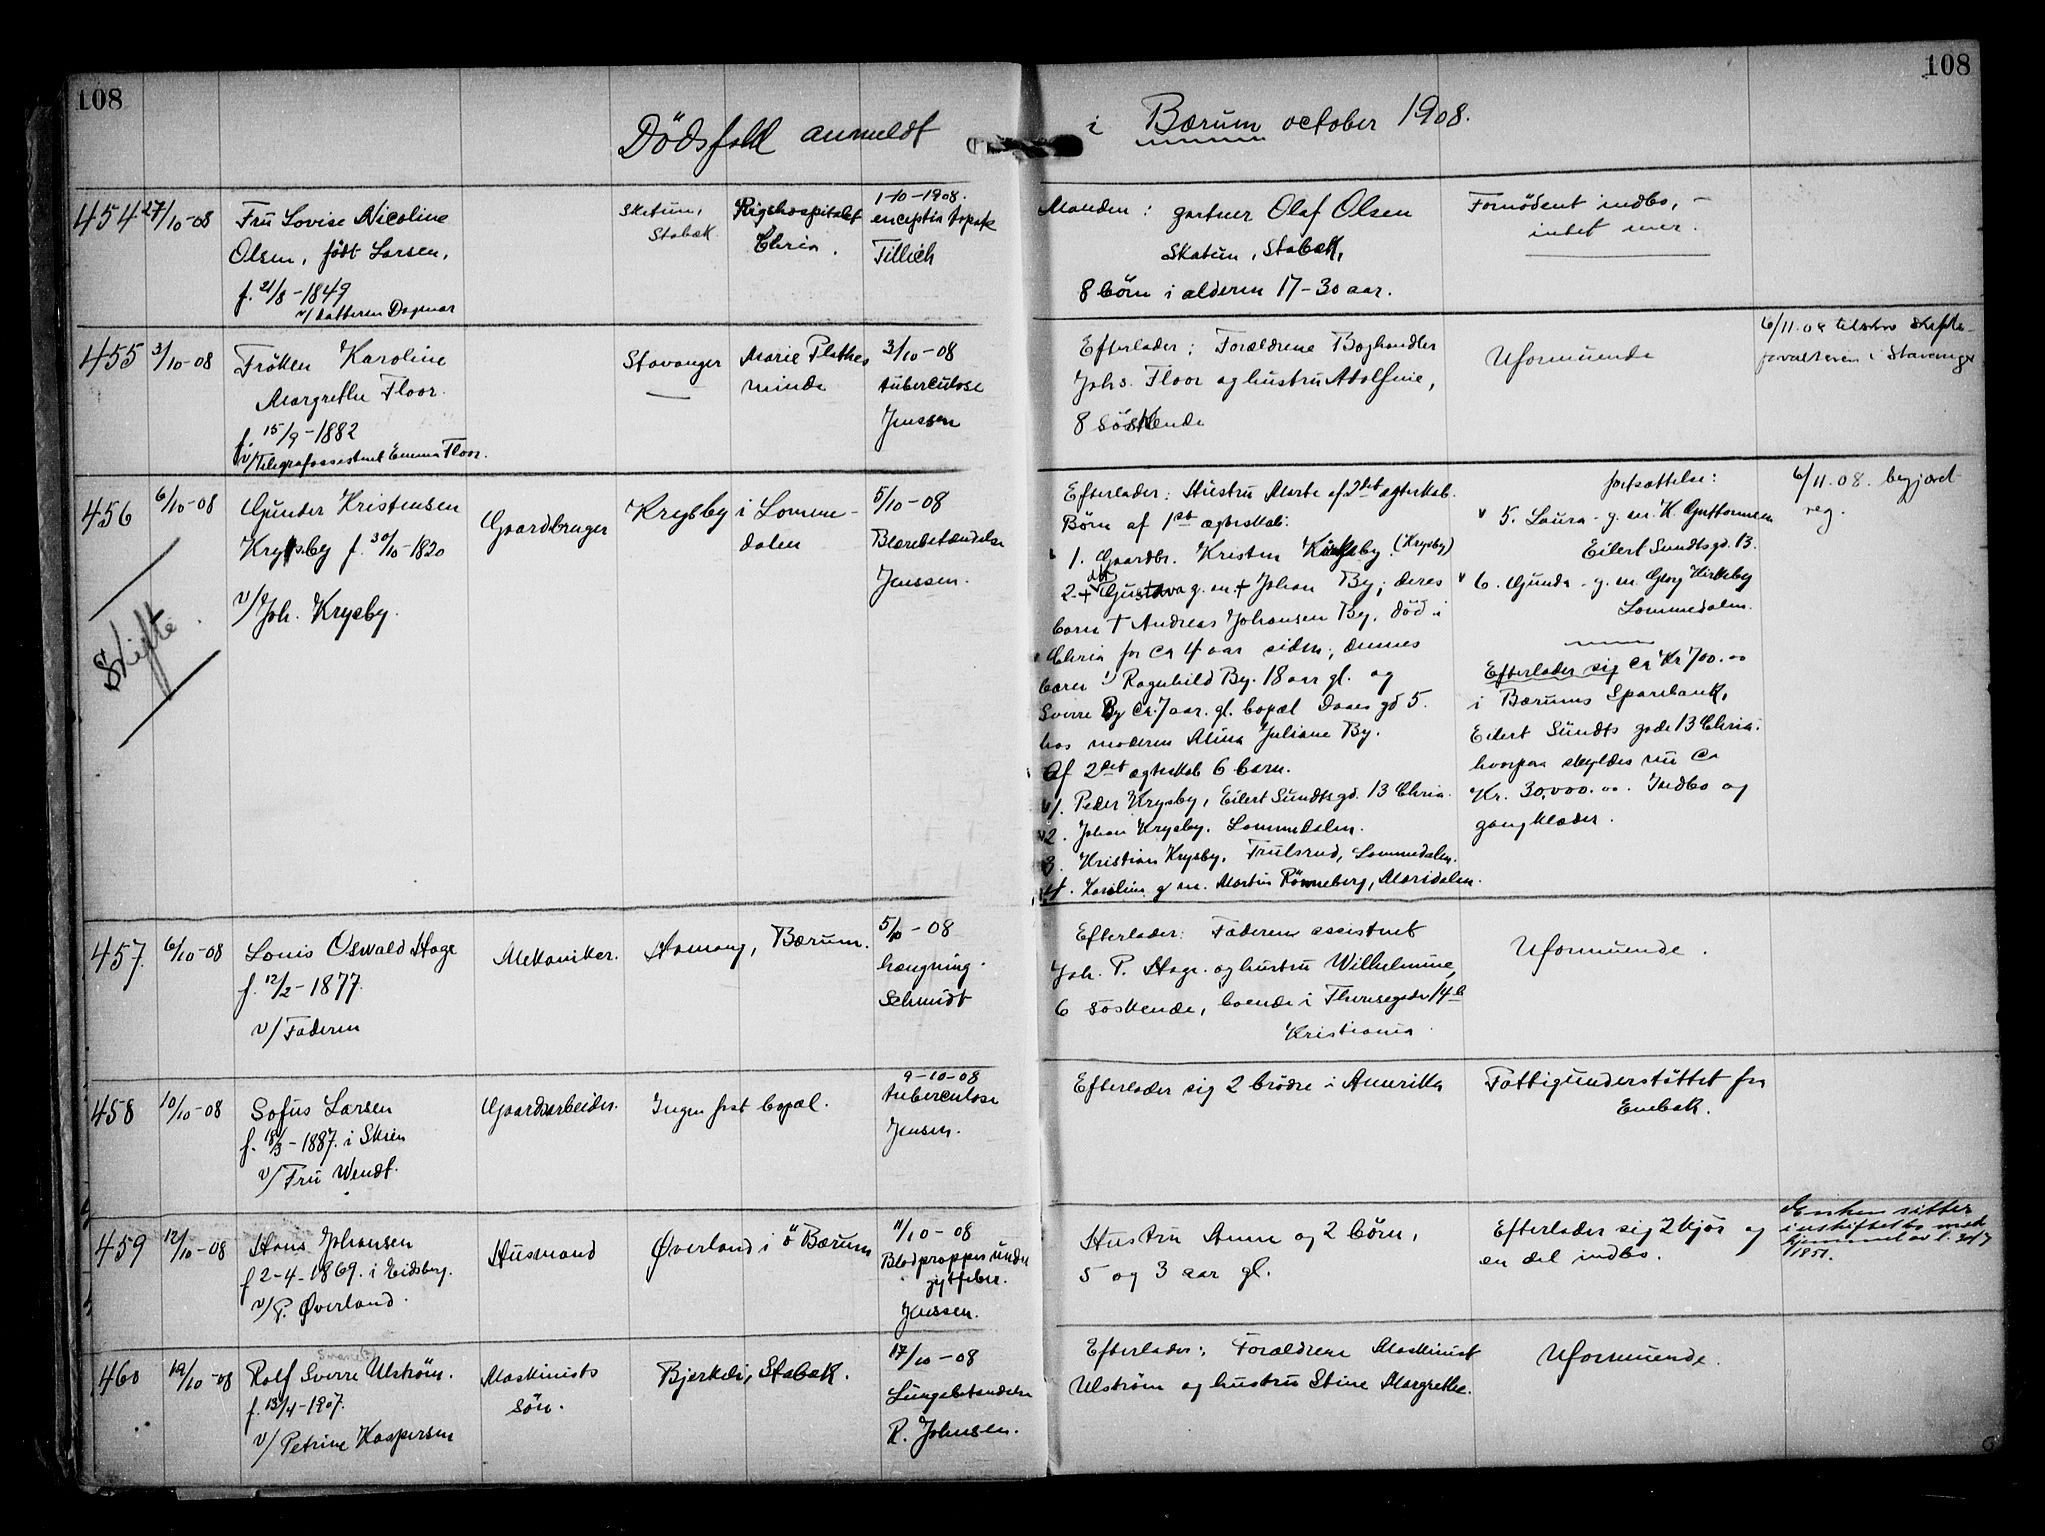 108
108
Dödsfald anmeldt i Bærum october 1908.
454 27/10-08 Fru Lovise Nicoline
Olsen, født Larsen,
f. 21/8-1849
v/ datteren Dagmar
Skatum,
Stabæk
Rigshospitalet
Chria.
1-10-1908.
Tillich
Manden: gartner Olaf Olsen
Skatum, Stabæk,
8 börn i alderen 17-30 aar.
Fornødent indbo, -
intet mer.
455 3/10-08 Fröken Karoline
Margrethe Floor.
f. 15/9-1882
v/Telegrafassistent Emma Floor.
Stavanger
Marie Plathes
minde
3/10-08
tuberculose
Jenssen
Efterlader: Forældrene Boghandler
Johs. Floor og hustru Adolfine,
8 söskende
Uformuende
6/11.08 tilskr. skifte-
forvalteren i Stavanger
456 6/10-08 Gunder Kristensen
Krysby f. 30/10-1820
v/Joh. Krysby.
Skifte.
Gaardbruger
Krysby i Lomme-
dalen
5/10-08
Blærebetændelse
Jenssen.
Efterlader: Hustru Marte af 2det ægteskab.
Börn af 1st ægteskab:
1. Gaardbr. Kristen Kirkeby. (Krysby)
2. + Gustava g. m. + Johan By; deres
barn + Andreas Johansen By, död i
Chria for ca 4 aar siden; dennes
barn 1) Ragnhild By. 18 aar gl. og
Sverre By ca. 7 aar. gl. bopæl Daaes gd 5.
hos moderen Alina Juliane By.
Af 2det ægteskab 6 barn.
1. Peder Krysby, Eilert Sundtsgd. 13 Chria.
2. Johan Krysby. Lommedalen.
3. Kristian Krysby. Trulsrud, Lommedalen.
4. Karoline g m. Martin Rønneberg, Maridalen.
fortsættelse:
5. Laura - g. m. K. Guttormsen
Eilert Sundtsgd. 13.
6. Gunda - g. m. Georg Kirkeby
Lommedalen.
Efterlader sig ca Kr 700.00
i Bærums Sparebank,
Eilert Sündts gade 13 Chria.
hvorpaa skyldes nu ca
Kr. 30,000.00. Indbo og
gangklæder.
6/11.08. begjæret
reg.
457. 6/10-08 Louis Oswald Hage
f. 12/2-1877.
v/Faderen
Mekaniker.
Hamang, Bærum.
5/10-08
hængning.
Schmidt
Efterlader: Faderen assistent
Joh. P. Hage. og hustru Wilhelmine,
6 söskende, boende i Theresegade 14 b
Kristiania.
Uformuende.
458 10/10-08 Sofus Larsen
f. 18/3-1887. i Skien
v/Fru Wendt.
Gaardsarbeider.
Ingen fast bopæl.
9-10-08
tuberculose
Jensen.
Efterlader sig 2 brödre i Amerika
Fattigunderstöttet fra
Enebak.
459 12/10-08 Hans Johansen
f 2-4-1869. i Eidsberg.
v/P. Øverland.
Husmand
Øverland i ö Bærum
11/10-08
Blodpropper under
gytfeber.
Jenssen.
Hustru Anne og 2 börn,
5 og 3 aar gl.
Efterlader sig 2 kjör og
en del indbo.
Enken sitter
i uskiftet bo med
hjemmel av l. 30/7
1851.
460 19/10-08 Rolf Sverre Ulström.
f. 13/4-1907.
v/ Petrine Kaspersen
Maskinists
sön.
Bjerkeli, Stabæk.
17/10-08
Lungebetændelse
R. Johnsen.
Efterlader: Forældrene Maskinist
Ulström og hustru Stine Margrethe.
Uformuende.